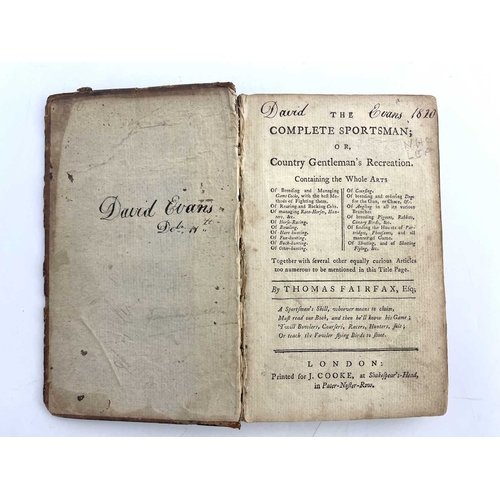 David Evans
David Evans 1820
THE
COMPLETE SPORTSMAN;
OR,
Country Gentleman's Recreation.
Containing the Whole ARTS
Of Breeding and Managing
Game Cocks, with the best Me-
thods of Fighting them.
Of Rearing and Backing Colts.
Of managing Race-Horses, Hun-
ters, &c.
Of Horse-Racing.
Of Bowling.
Of Hare-hunting.
Of Fox-hunting.
Of Buck-hunting.
Of Otter-hunting.
Of Coursing.
Of breeding and ordering Dogs
for the Gun, or Chace, &c.
Of Angling in all its various
Branches.
Of breeding Pigeons, Rabbits,
Canary Birds, &c.
Of finding the Haunts of Par-
tridges, Pheasants, and all
manner of Game.
Of Shooting, and of Shooting
Flying, &c.
Together with several other equally curious Articles
too numerous to be mentioned in this Title Page.
By THOMAS FAIRFAX, Esq;
A Sportsman's Skill, whoever means to claim,
Must read our Book, and then he'll know his Game;
'Twill Bowlers, Coursers, Racers, Hunters, suit;
Or teach the Fowler flying Birds to shoot.
LONDON:
Printed for J. COOKE, at Shakespear's-Head,
in Pater-Noster-Row.